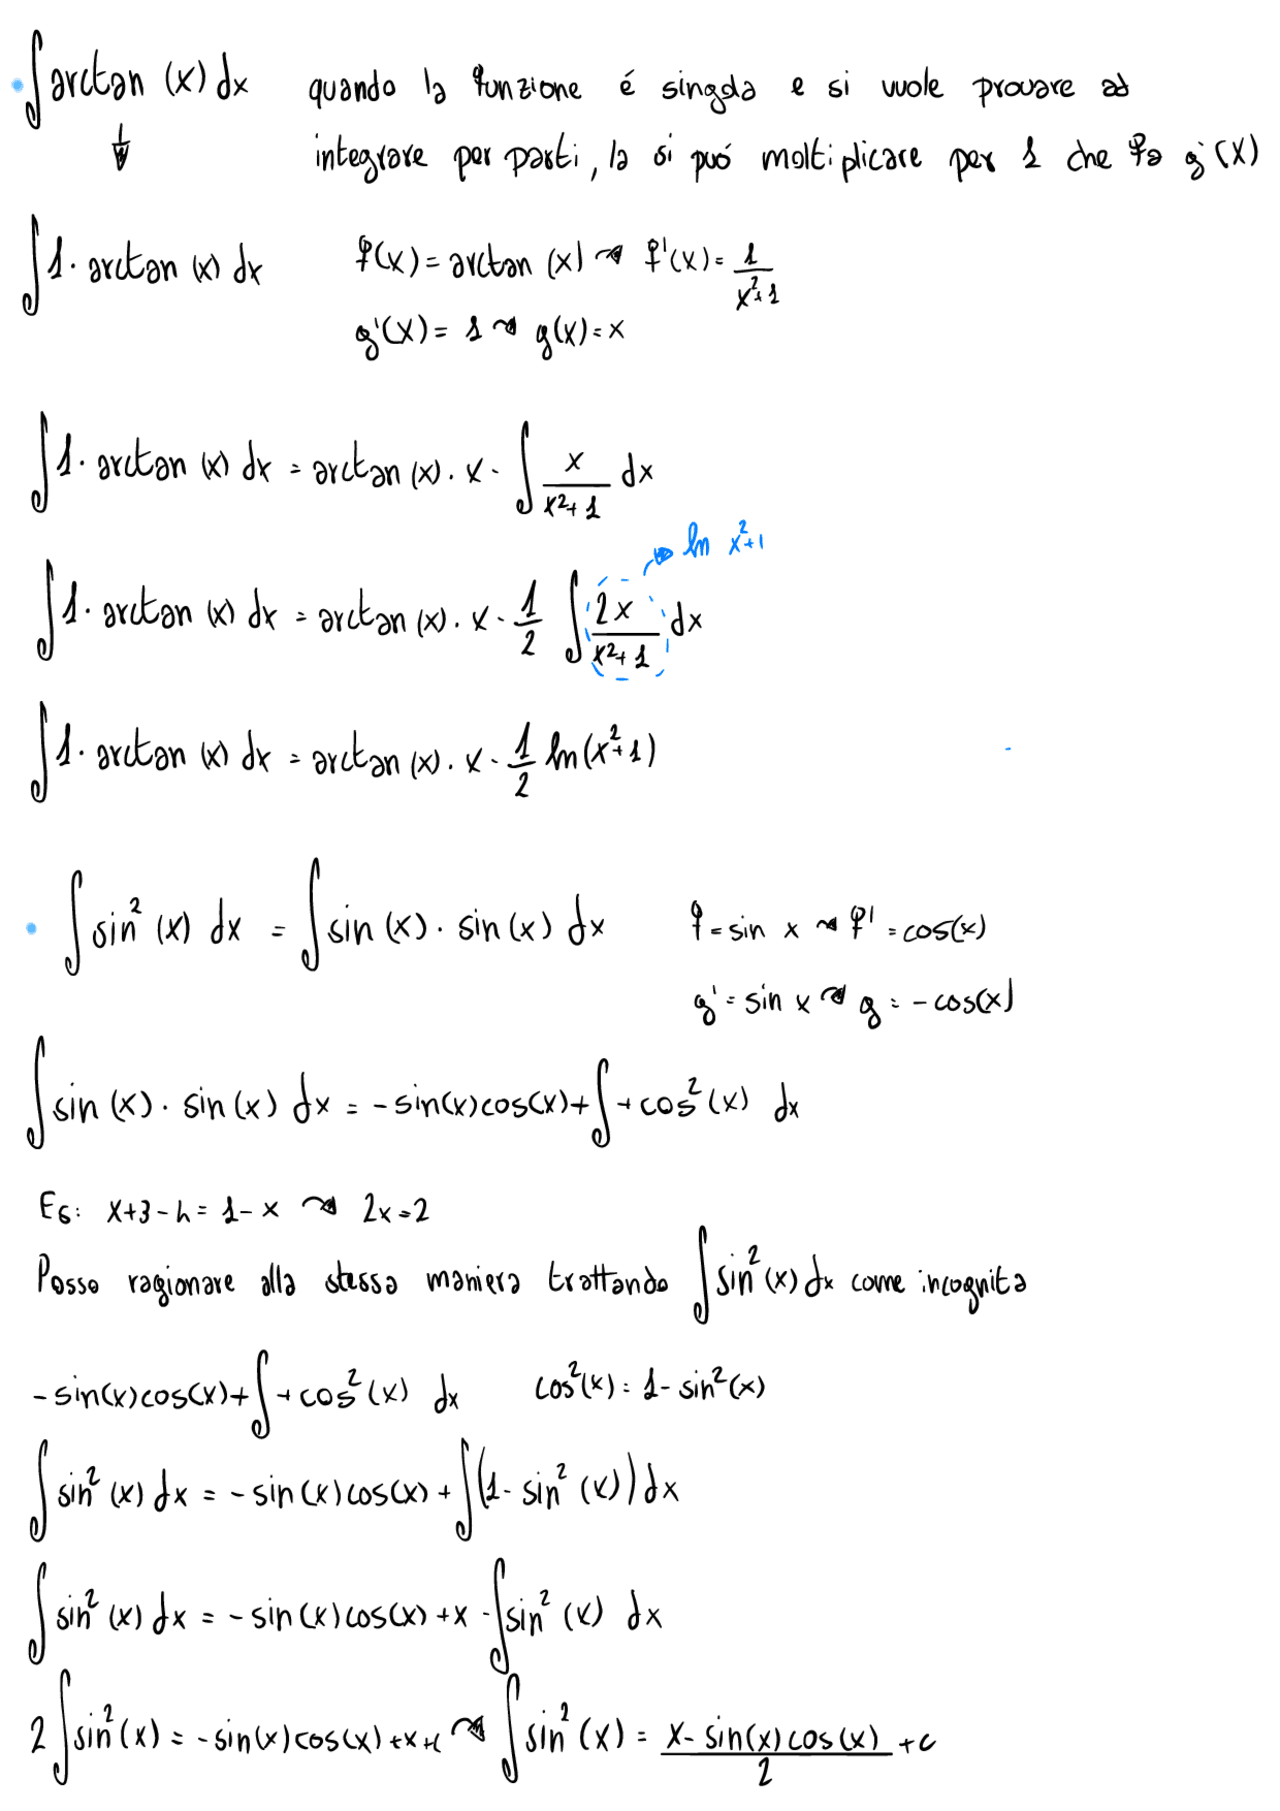 • ∫ arctan (x) dx quando la funzione é singola e si vuole provare ad
↓ integrare per parti, la si puó moltiplicare per 1 che fa g'(x)
∫ 1· arctan (x) dx f(x) = arctan (x) ⇝ f'(x) = 1/(x²+1)
g'(x) = 1 ⇝ g(x) = x
∫ 1· arctan (x) dx = arctan (x) · x - ∫ x/(x²+1) dx
→ ln x²+1
∫ 1· arctan (x) dx = arctan (x) · x - 1/2 ∫ 2x/(x²+1) dx
∫ 1· arctan (x) dx = arctan (x) · x - 1/2 ln(x²+1)
• ∫ sin² (x) dx = ∫ sin (x) · sin (x) dx f = sin x ⇝ f' = cos(x)
g' = sin x ⇝ g = - cos(x)
∫ sin (x) · sin (x) dx = - sin(x) cos(x) + ∫ + cos² (x) dx
Es: x+3-h = 1-x ⇝ 2x=2
Posso ragionare alla stessa maniera trattando ∫ sin² (x) dx come incognita
- sin(x) cos(x) + ∫ + cos² (x) dx cos²(x) = 1 - sin²(x)
∫ sin² (x) dx = - sin (x) cos(x) + ∫ (1 - sin² (x)) dx
∫ sin² (x) dx = - sin (x) cos(x) + x - ∫ sin² (x) dx
2 ∫ sin² (x) = - sin(x) cos(x) + x + c ⇝ ∫ sin² (x) = (x - sin(x) cos(x))/2 + c